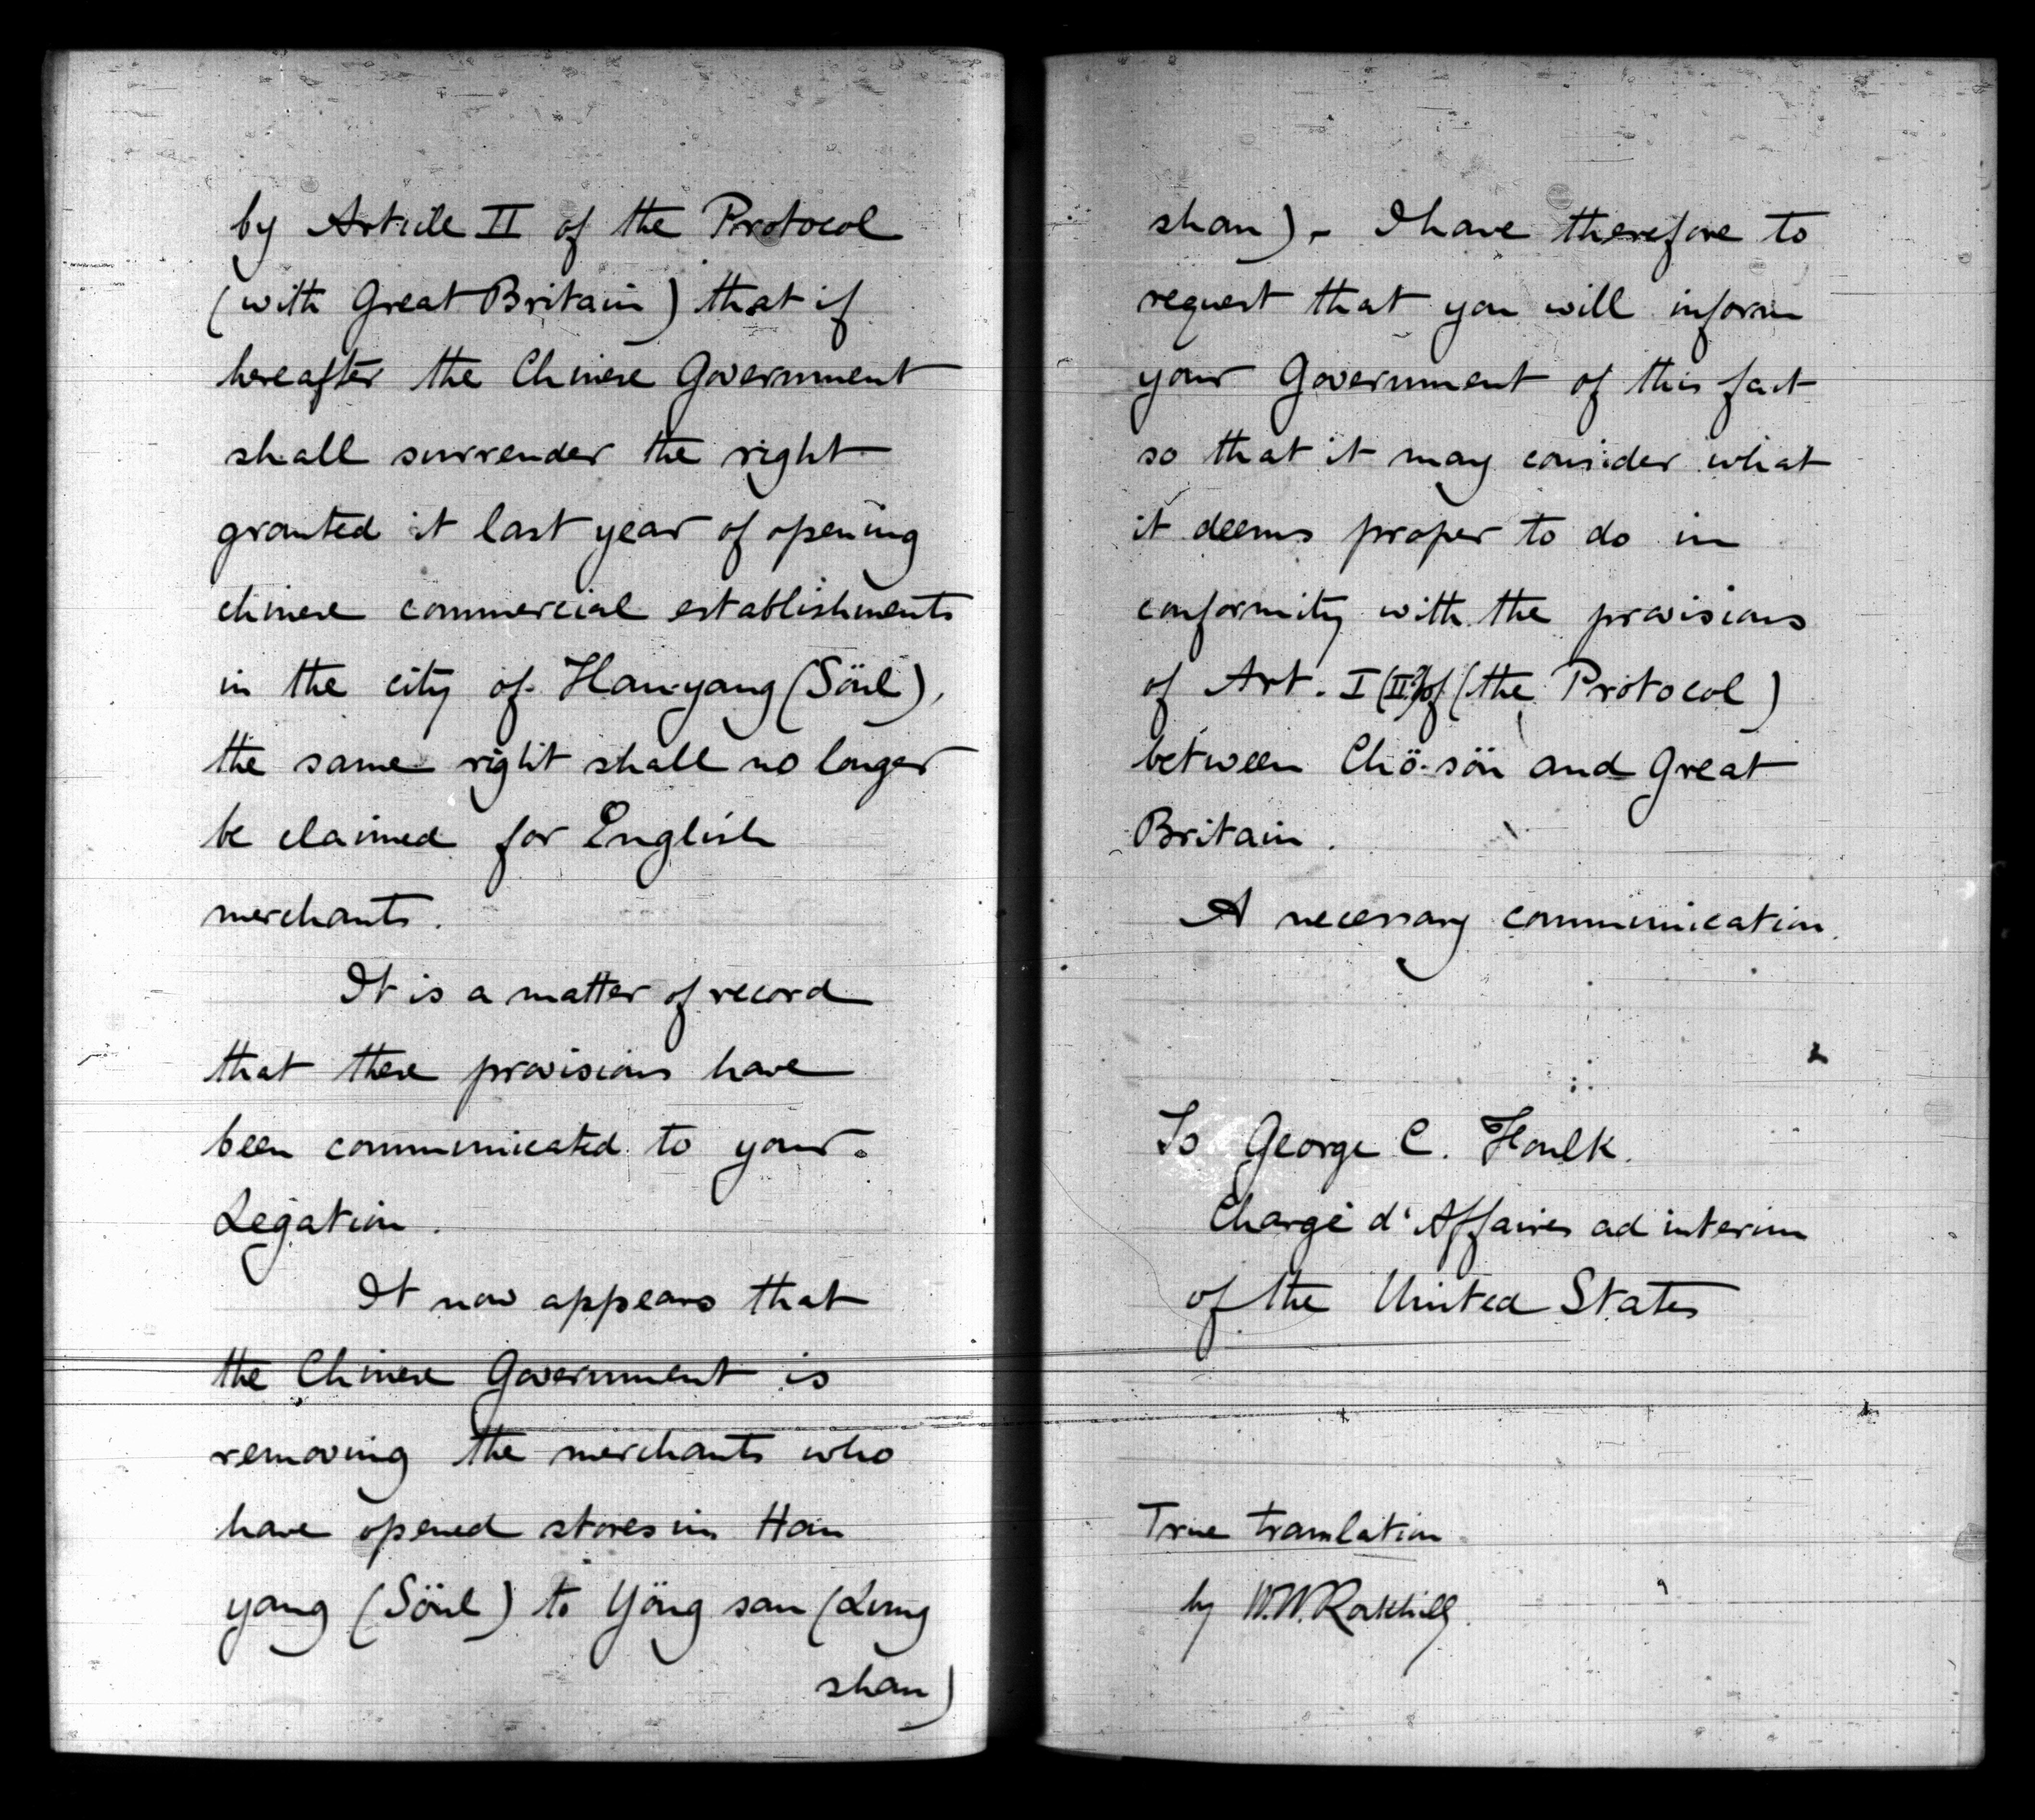 by Article II of the Protocol
(with Great Britain) that if
hereafter the Chinese Government
shall surrender the right
granted it last year of opening
chinese commercial establishments
in the city of Han-yang (Söul),
the same right shall no longer
be claimed for English
merchants.
It is a matter of record
that these provisions have
been communicated to your
Legation.
It now appears that
the Chinese Government is
removing the merchants who
have opened stores in Han
yang (Söul) to Yöng san (Lung
shan)
shan). I have therefore to
request that you will inform
your Government of this fact
so that it may consider what
it deems proper to do in
conformity with the provisions
of Art. I (II?) of (the Protocol)
between Chö-sön and Great
Britain.
A necessary communication.
To George C. Foulk.
Chargé d'Affaires ad interim
of the United States
True translation
by W.W. Rockhill.